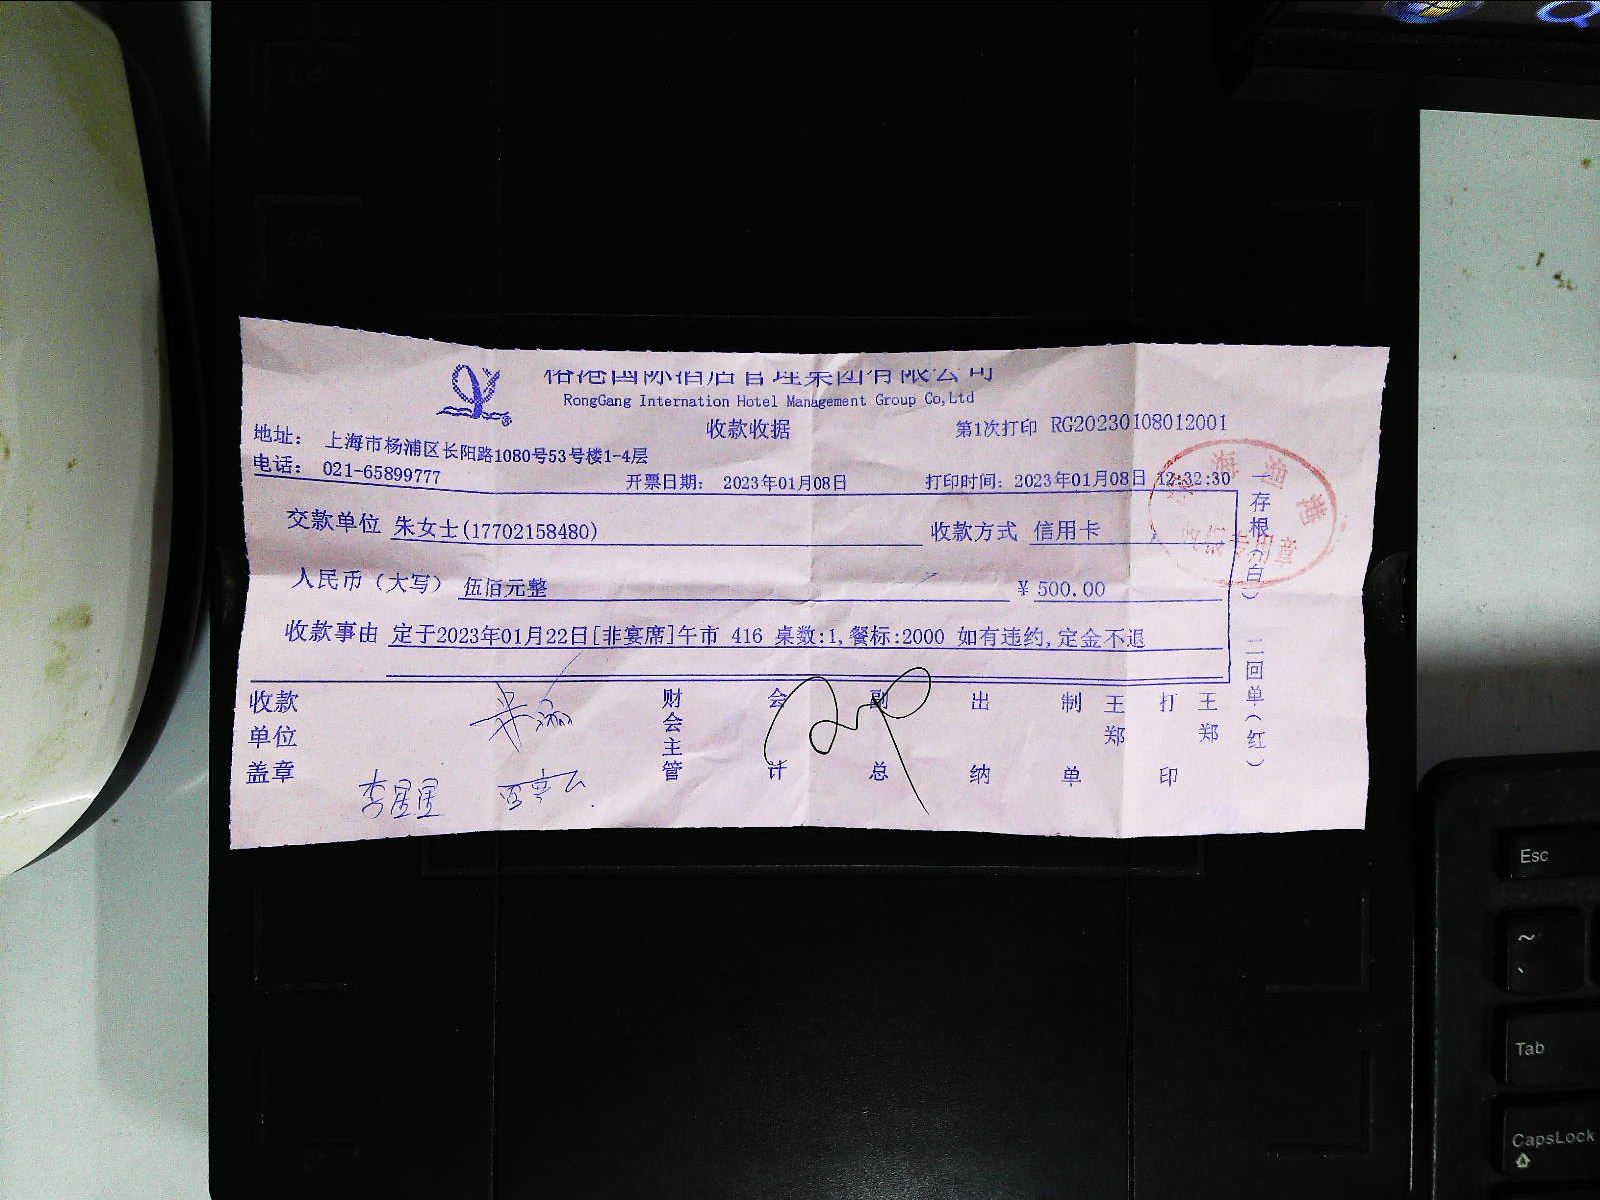 榕港国际酒店管理集团有限公司
RongGang Internation Hotel Management Group Co,Ltd
收款收据
第1次打印 RG20230108012001
地址： 上海市杨浦区长阳路1080号53号楼1-4层
电话： 021-65899777
开票日期： 2023年01月08日
打印时间：2023年01月08日 12:32:30
交款单位 朱女士(17702158480)
收款方式 信用卡
人民币（大写） 伍佰元整
¥ 500.00
收款事由 定于2023年01月22日[非宴席]午市 416 桌数:1,餐标:2000 如有违约,定金不退
收款单位盖章
财会主管
会计
副总
出纳
制单 王郑
打印 王郑
一存根（白） 二回单（红）
李星星
A4
A5
Esc
~
Tab
CapsLock